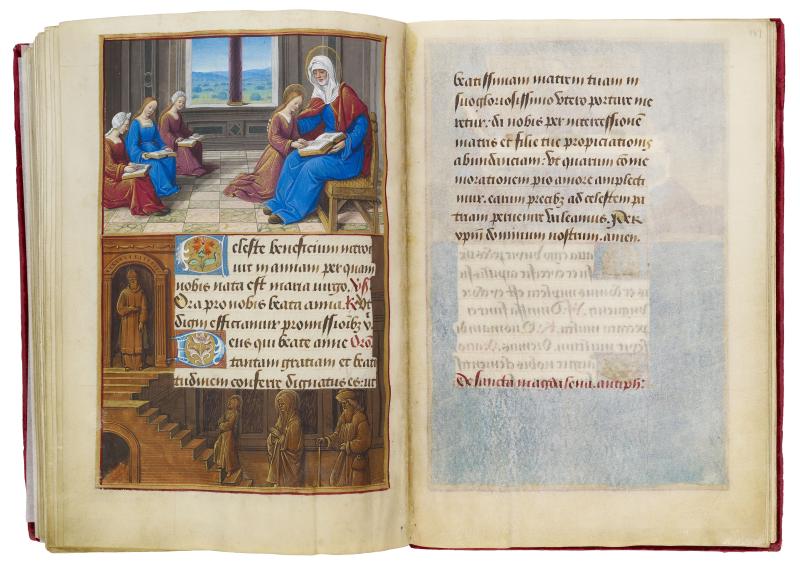 Celeste beneficium introi
vit in annam per quam
nobis nata est maria virgo. V̄s̄
Ora pro nobis beata anna. R̄ Ut
digni efficiamur promissionibȝ x̄.
Deus qui beate anne Orō
tantam gratiam et beati
tudinem conferre dignatus es: ut
beatissimam matrem tuam in
suo gloriosissimo utero portare me
retur. da nobis per intercessionē
matris et filie tue propiciationis
abundanciam: Ut quarum cōme
morationem pio amore amplecti
mur. earum precibȝ ad celestem pa
triam pervenire valeamus. Per
xp̄m dominum nostrum. amen.
De sancta magdalena. antiph̄: